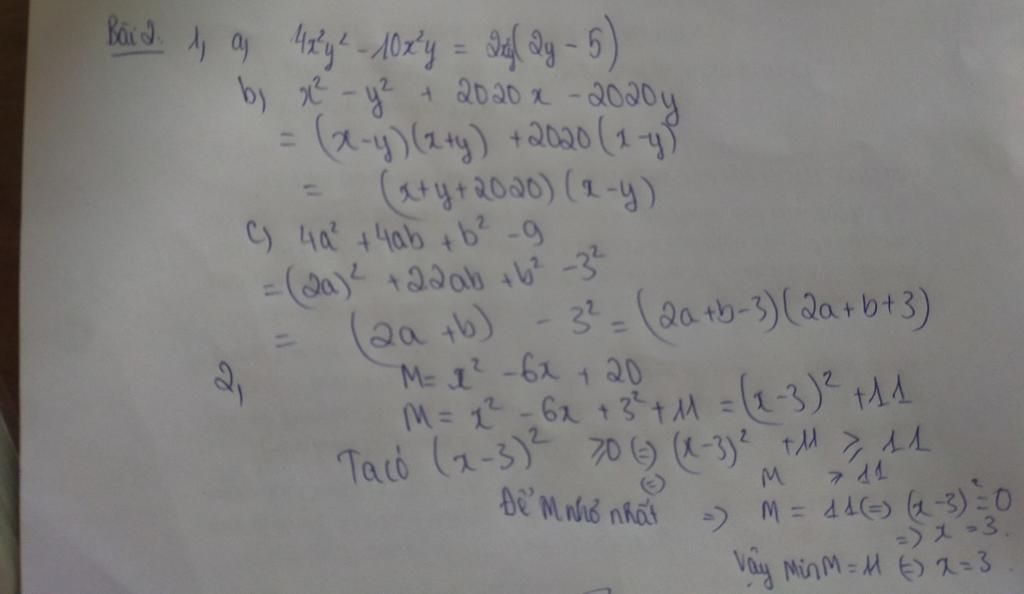 Bài 2. 1, a, 4x²y² - 10x²y = 2xy(2y - 5)
b, x² - y² + 2020x - 2020y
= (x-y)(x+y) + 2020(x-y)
= (x+y+2020)(x-y)
c, 4a² + 4ab + b² - 9
= (2a)² + 22ab + b² - 3²
= (2a+b) - 3² = (2a+b-3)(2a+b+3)
2, M = x² - 6x + 20
M = x² - 6x + 3² + 11 = (x-3)² + 11
Ta có (x-3)² ≥ 0 (=) (x-3)² + 11 ≥ 11
(=) M ≥ 11
Để M nhỏ nhất => M = 11 (=) (x-3)² = 0
=> x = 3.
Vậy Min M = 11 (=) x = 3.